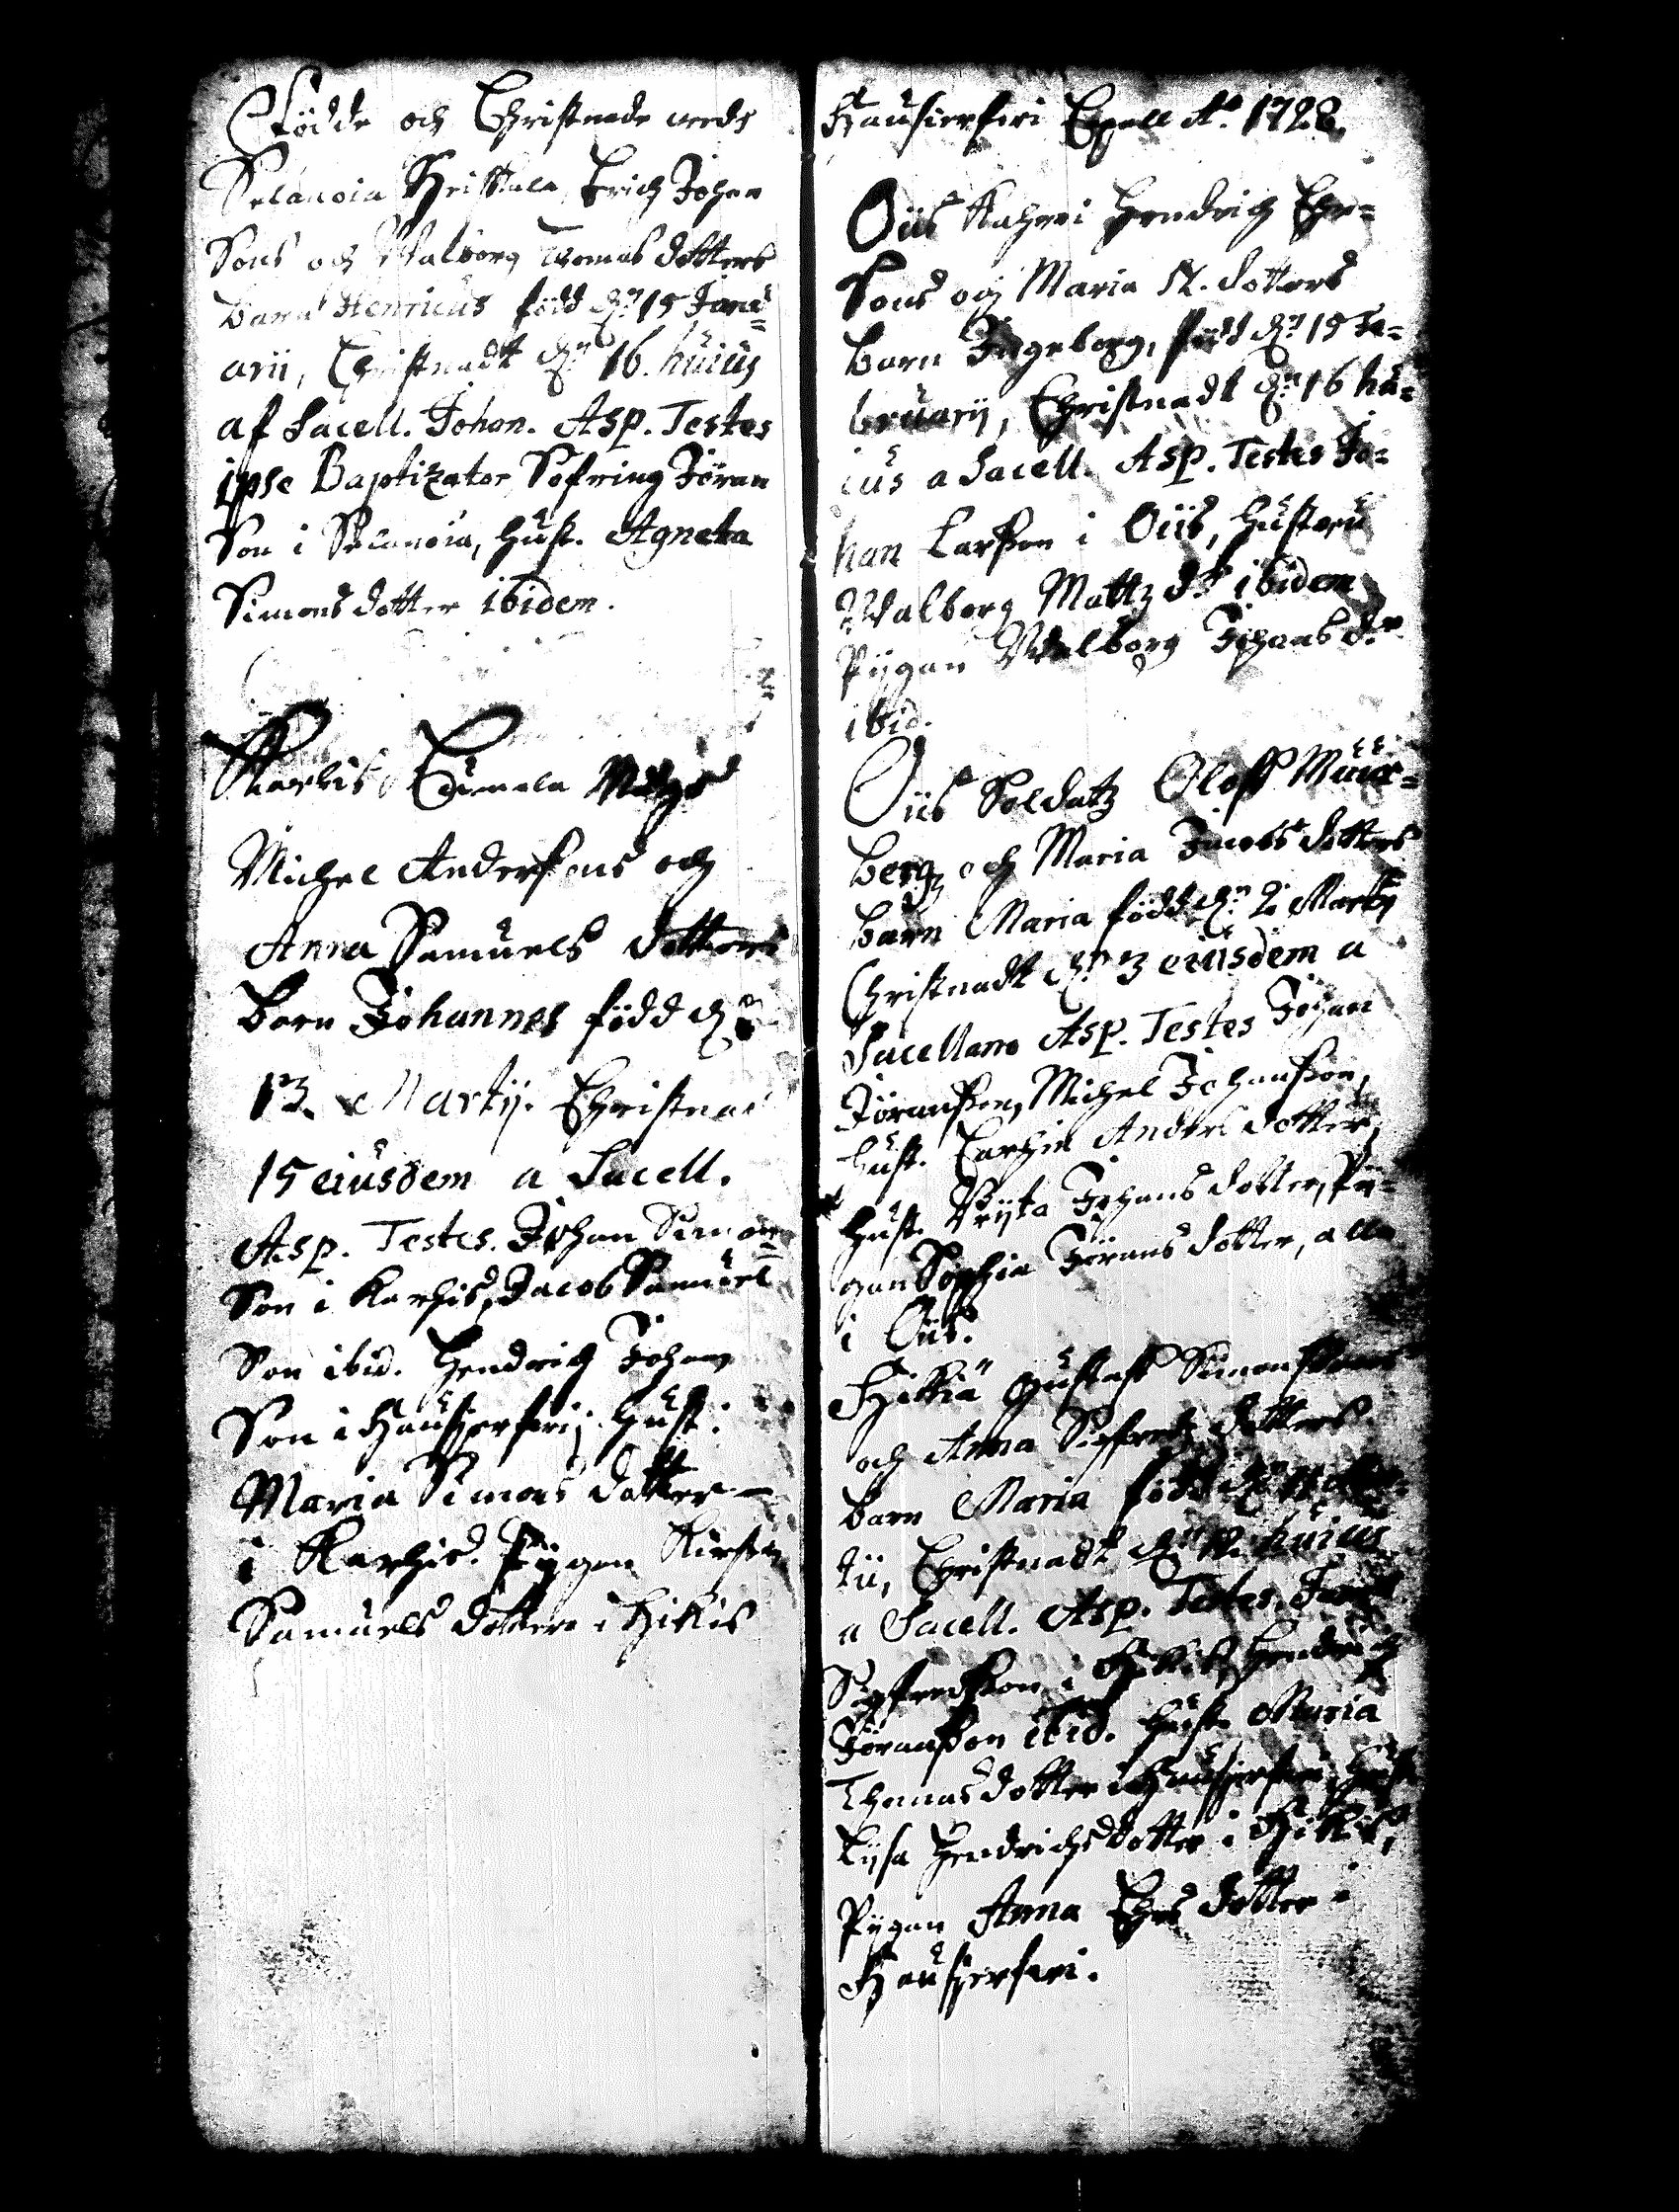 Födde och Christnade weds
Selanoia Heikkala Erich Johan
Sons och Walborg Tomas dotters
barn Henricus född d:n 15 Janu=
arii, Christnadt d:n 16. huius
af Sacell. Johan. Asp. Testes
ipse Baptizator Sefring Jöran
Son i Selanoia, Hust. Agneta
Simons dotter ibidem.
Karhis
Michel Andersons och
Anna Samuels dotters
barn Johannes född d:n
13. Martij. Christnad
15 eiusdem a Sacell.
Asp. Testes. Johan Simon=
Son i Karhis, Jacob Samuel
Son ibid. Hendrich Johan
Son i Hausjerfwi, Hust.
Maria Simons dotter
i Karhis. Pygan Kirstin
Samuels dotter i Hikis
Hausierfwi Capell A:o 1728.
Oiis Hendrich Ehr=
Sons och Maria N. dotters
barn Ingeborg, född d:n 15 Fe=
bruarij, Christnadt d:n 16 hu=
ius a Sacell. Asp. Testes Jo=
han Larsson i Oiis, Hustru
Walborg Mattz d:r ibidem
Pygan Walborg Johans d:r
ibid.
Oiis Soldatz Oloff Muur=
berg och Maria Jacobs dotters
barn Maria född d:n 2. Martij
Christnadt d:n 3 eiusdem a
Sacellano Asp. Testes Johan
Jöransson, Michel Johansson,
Hust. Carhin Anders dotter,
Hust. Bryta Johans dotter, Py=
gan Sophia Jörans dotter, alla
i Oiis.
Hikiä Gustaff Simonssons
och Anna Sigfredz dotters
barn Maria född d:n Mar=
tii, Christnadt d:n huius
a Sacell. Asp. Testes.
Sigfredsson i Hikis, Hendrich
Jöransson ibid. Hust. Maria
Thomas dotter i Hausjerfwi, Hust.
Lysa Hendrichs dotter i Hikis,
Pygan Anna Ehrs dotter i
Hausjerfwi.